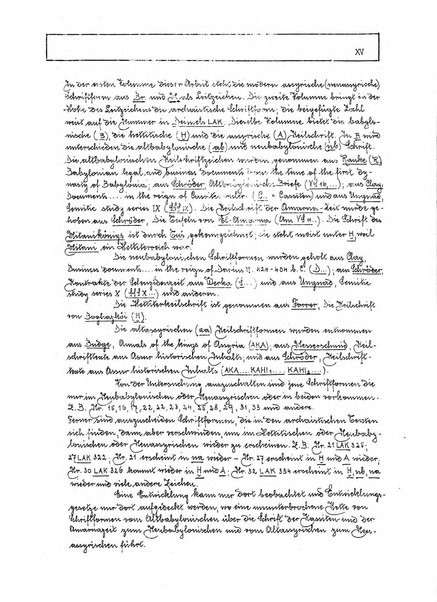 XV
In der ersten Kolumne dieser Arbeit steht die modern assyrische (neuassyrische)
Schriftform aus Br. und als Leitzeichen. Die zweite Kolumne bringt in der
Höhe des Leitzeichens die archaistische Schriftform; die beigefügte Zahl
weist auf die Nummer in Deimels LAK. Dieselbe Kolumne bietet die babylo-
nische (B), die hethitische (H) und die assyrische (A) Keilschrift. In B wird
unterschieden die altbabylonische (ab) und neubabylonische (nb) Schrift.
Die altbabylonischen Keilschriftzeichen wurden genommen aus Ranke (R)
Babylonian legal and business documents from the time of the first dy-
nasty of Babylonia; aus Schröder, Altbabylonische Briefe (VS 16,...); aus Clay,
Documents.... in the reign of Cassite rulers (C. = Cassiten) und aus Ungnad,
Semitic study series IX (SSS IX). Die Keilschrift der Amarna-Zeit wurde ge-
hoben aus Schröder, Die Tafeln von El-Amarna (Am VS 11..). Die Schrift des
Mitanikönigs ist durch gekennzeichnet; sie steht meist unter H, weil
Mitani ein Hethiterreich war.
Die neubabylonischen Schriftformen wurden geholt aus Clay,
Business documents.... in the reign of Darius II. 424-404 b. C. (D...); aus Schröder
Kontrakte der Seleucidenzeit aus Warka (S...) und aus Ungnad, Semitic
study series X (SSS X) und anderen.
Die Hethiterkeilschrift ist genommen aus Forrer, Die Keilschrift
von Boghazköi (H).
Die altassyrischen (aa) Keilschriftformen wurden entnommen
aus Budge, Annals of the kings of Assyria (AKA), aus Messerschmid, Keil-
schrifttexte aus Assur historischen Inhalts; und aus Schröder, Keilschrift-
texte aus Assur historischen Inhalts (AKA.... KAHI₁.... KAHI₂....).
Von der Untersuchung auszuschalten sind jene Schriftformen, die
nur im Neubabylonischen oder Neuassyrischen oder in beiden vorkommen.
Z. B. Nr. 15, 16, 17, 22, 22, 23, 24, 25, 28, 29, 31, 33 und andere.
Ferner sind auszuscheiden Schriftformen, die in den archaistischen Texten
sich finden, dann aber verschwinden, um im Hethitischen oder Neubaby-
lonischen oder Neuassyrischen wieder zu erscheinen. Z. B. Nr. 21 LAK 325.
27 LAK 322. Nr. 21 erscheint in na wieder – Nr. 27 erscheint in H und A wieder,
Nr. 30 LAK 326 kommt wieder in H und A. Nr. 32 LAK 334 erscheint in H, nb, na
wieder und viele andere Zeichen.
Eine Entwicklung kann nur dort beobachtet und Entwicklungs-
gesetze nur dort aufgedeckt werden, wo eine ununterbrochene Kette von
Schriftformen vom Altbabylonischen über die Schrift der Kassiten und der
Amarnazeit zum Neubabylonischen und vom Altassyrischen zum Neu-
assyrischen führt.